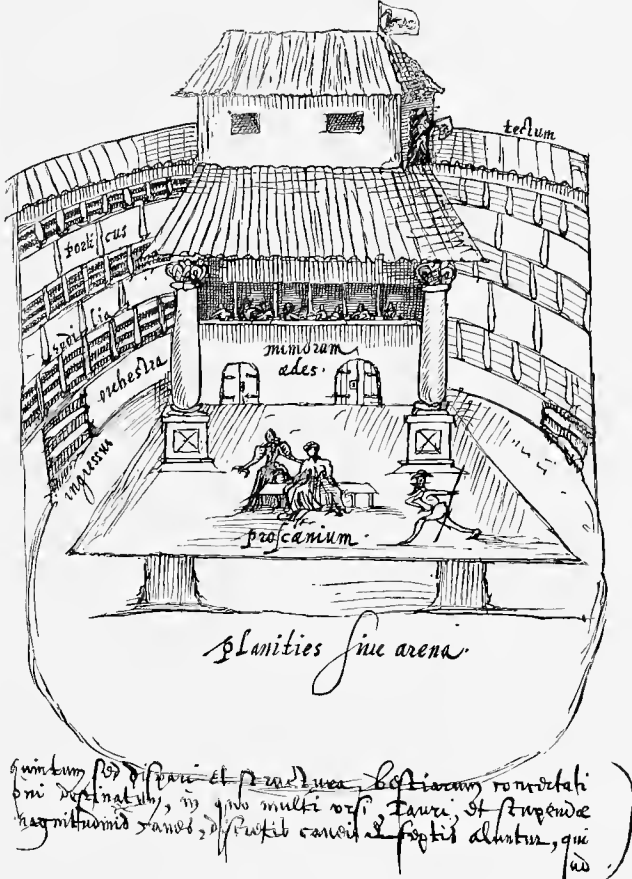 tectum
porticus
sedilia
orchestra
ingressus
mimorum
ædes.
proscænium.
planities sive arena.
quintum, sed dispari et structura, bestiarum concertati
oni destinatum, in quo multi ursi, Tauri, et stupendæ
magnitudinis canes, discretis caveis et septis aluntur, qui
ad